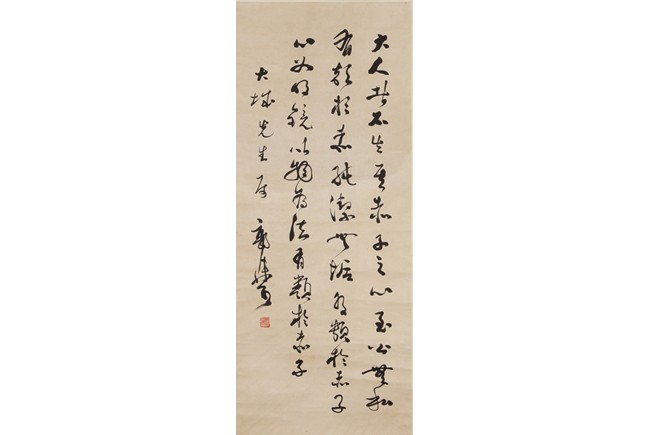 大人者不失其赤子之心至公無私
有類於赤子純潔無垢有類於赤子
心如明鏡以物為法有類於赤子
大城先生屬 郭沫若